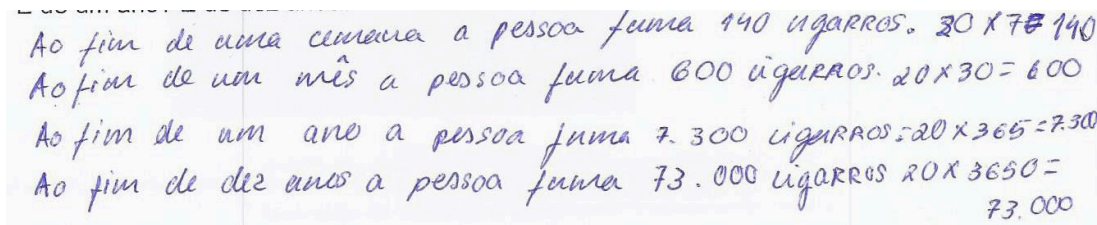 Ao fim de uma cemana a pessoa fuma 140 cigarros. 20 x 7 = 140
Ao fim de um mês a pessoa fuma 600 cigarros. 20 x 30 = 600
Ao fim de um ano a pessoa fuma 7.300 cigarros = 20 x 365 = 7.300
Ao fim de dez anos a pessoa fuma 73.000 cigarros 20 x 3650 =
73.000